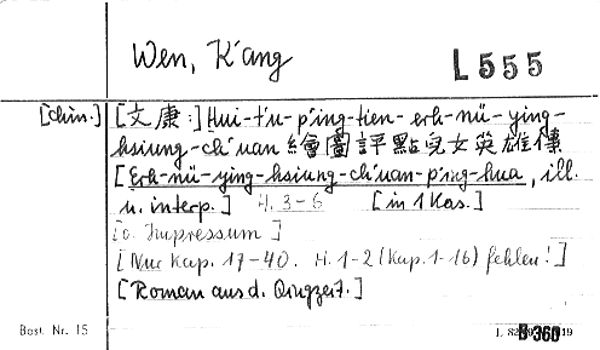 Wen, K'ang
L 555
[chin.] [文康:] Hui-t'u-p'ing-tien-erh-nü-ying-
hsiung-ch'uan 繪圖評點兒女英雄傳
[Erh-nü-ying-hsiung-ch'uan-p'ing-hua, ill.
u. interp.] H. 3-6 [in 1 Kas.]
[o. Impressum]
[Nur Kap. 17-40. H. 1-2 (Kap. 1-16) fehlen!]
[Roman aus d. Qingzeit.]
Best. Nr. 15
B 360